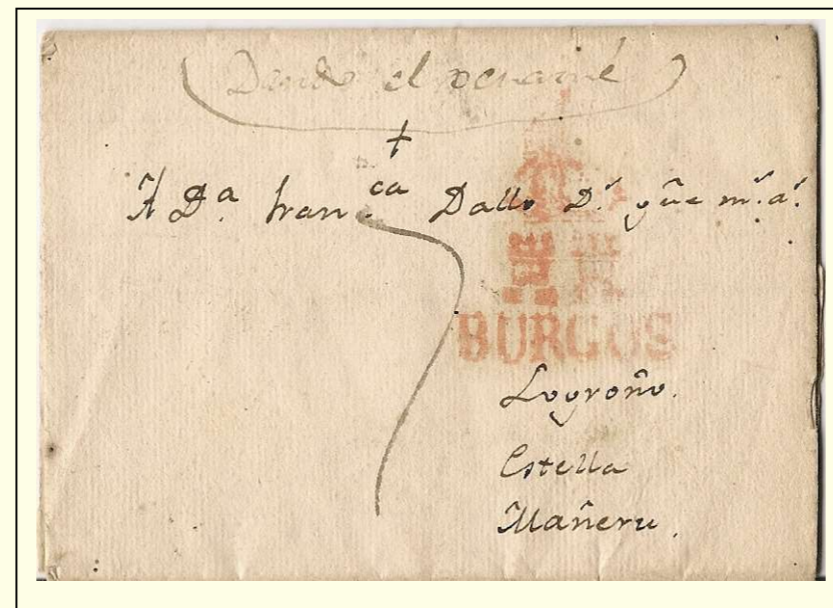 el
+
A D.ª Fran.ca Dallo D.s gûe m.s a.s
BURGOS
Logroño.
Estella
Mañeru.